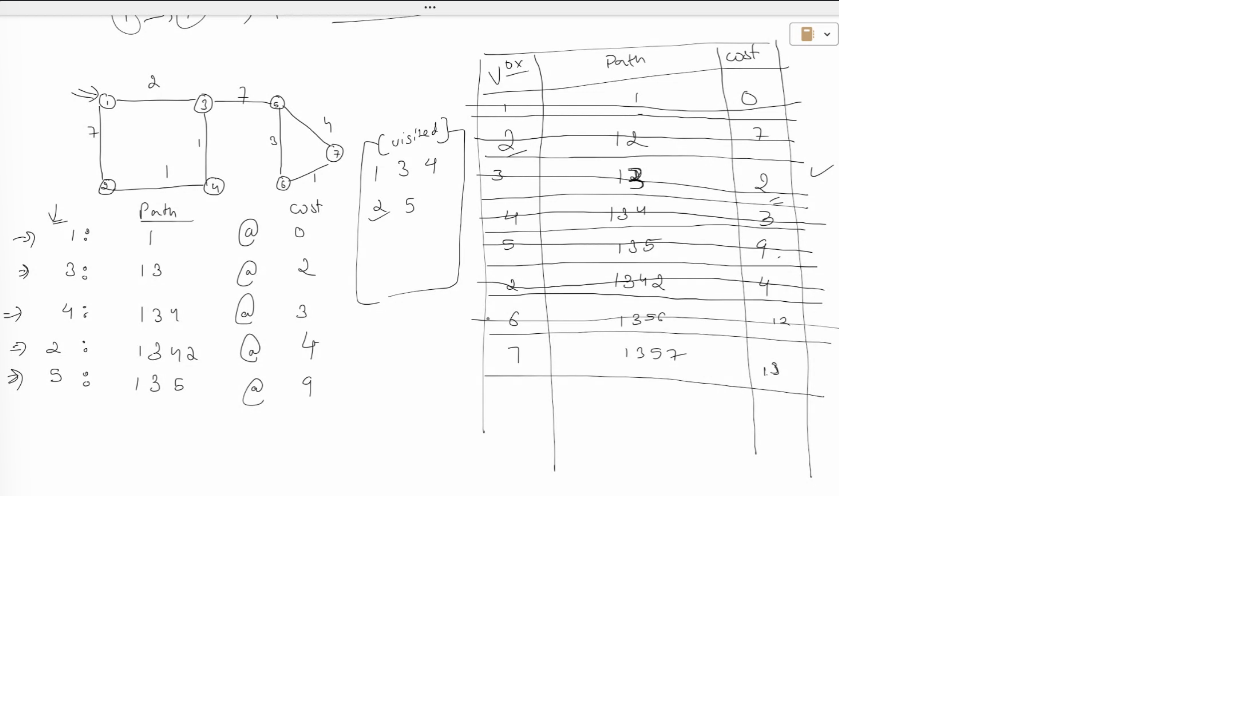 2
7
1
3
5
7
4
7
1
3
1
2
4
6
1
Path cost
1: 1 @ 0
3: 13 @ 2
4: 134 @ 3
2: 1342 @ 4
5: 135 @ 9
{visited}
1 3 4
2 5
Vtx Path cost
1 1 0
2 12 7
3 13 2
4 134 3
5 135 9.
2 1342 4
6 1356 12
7 1357 13